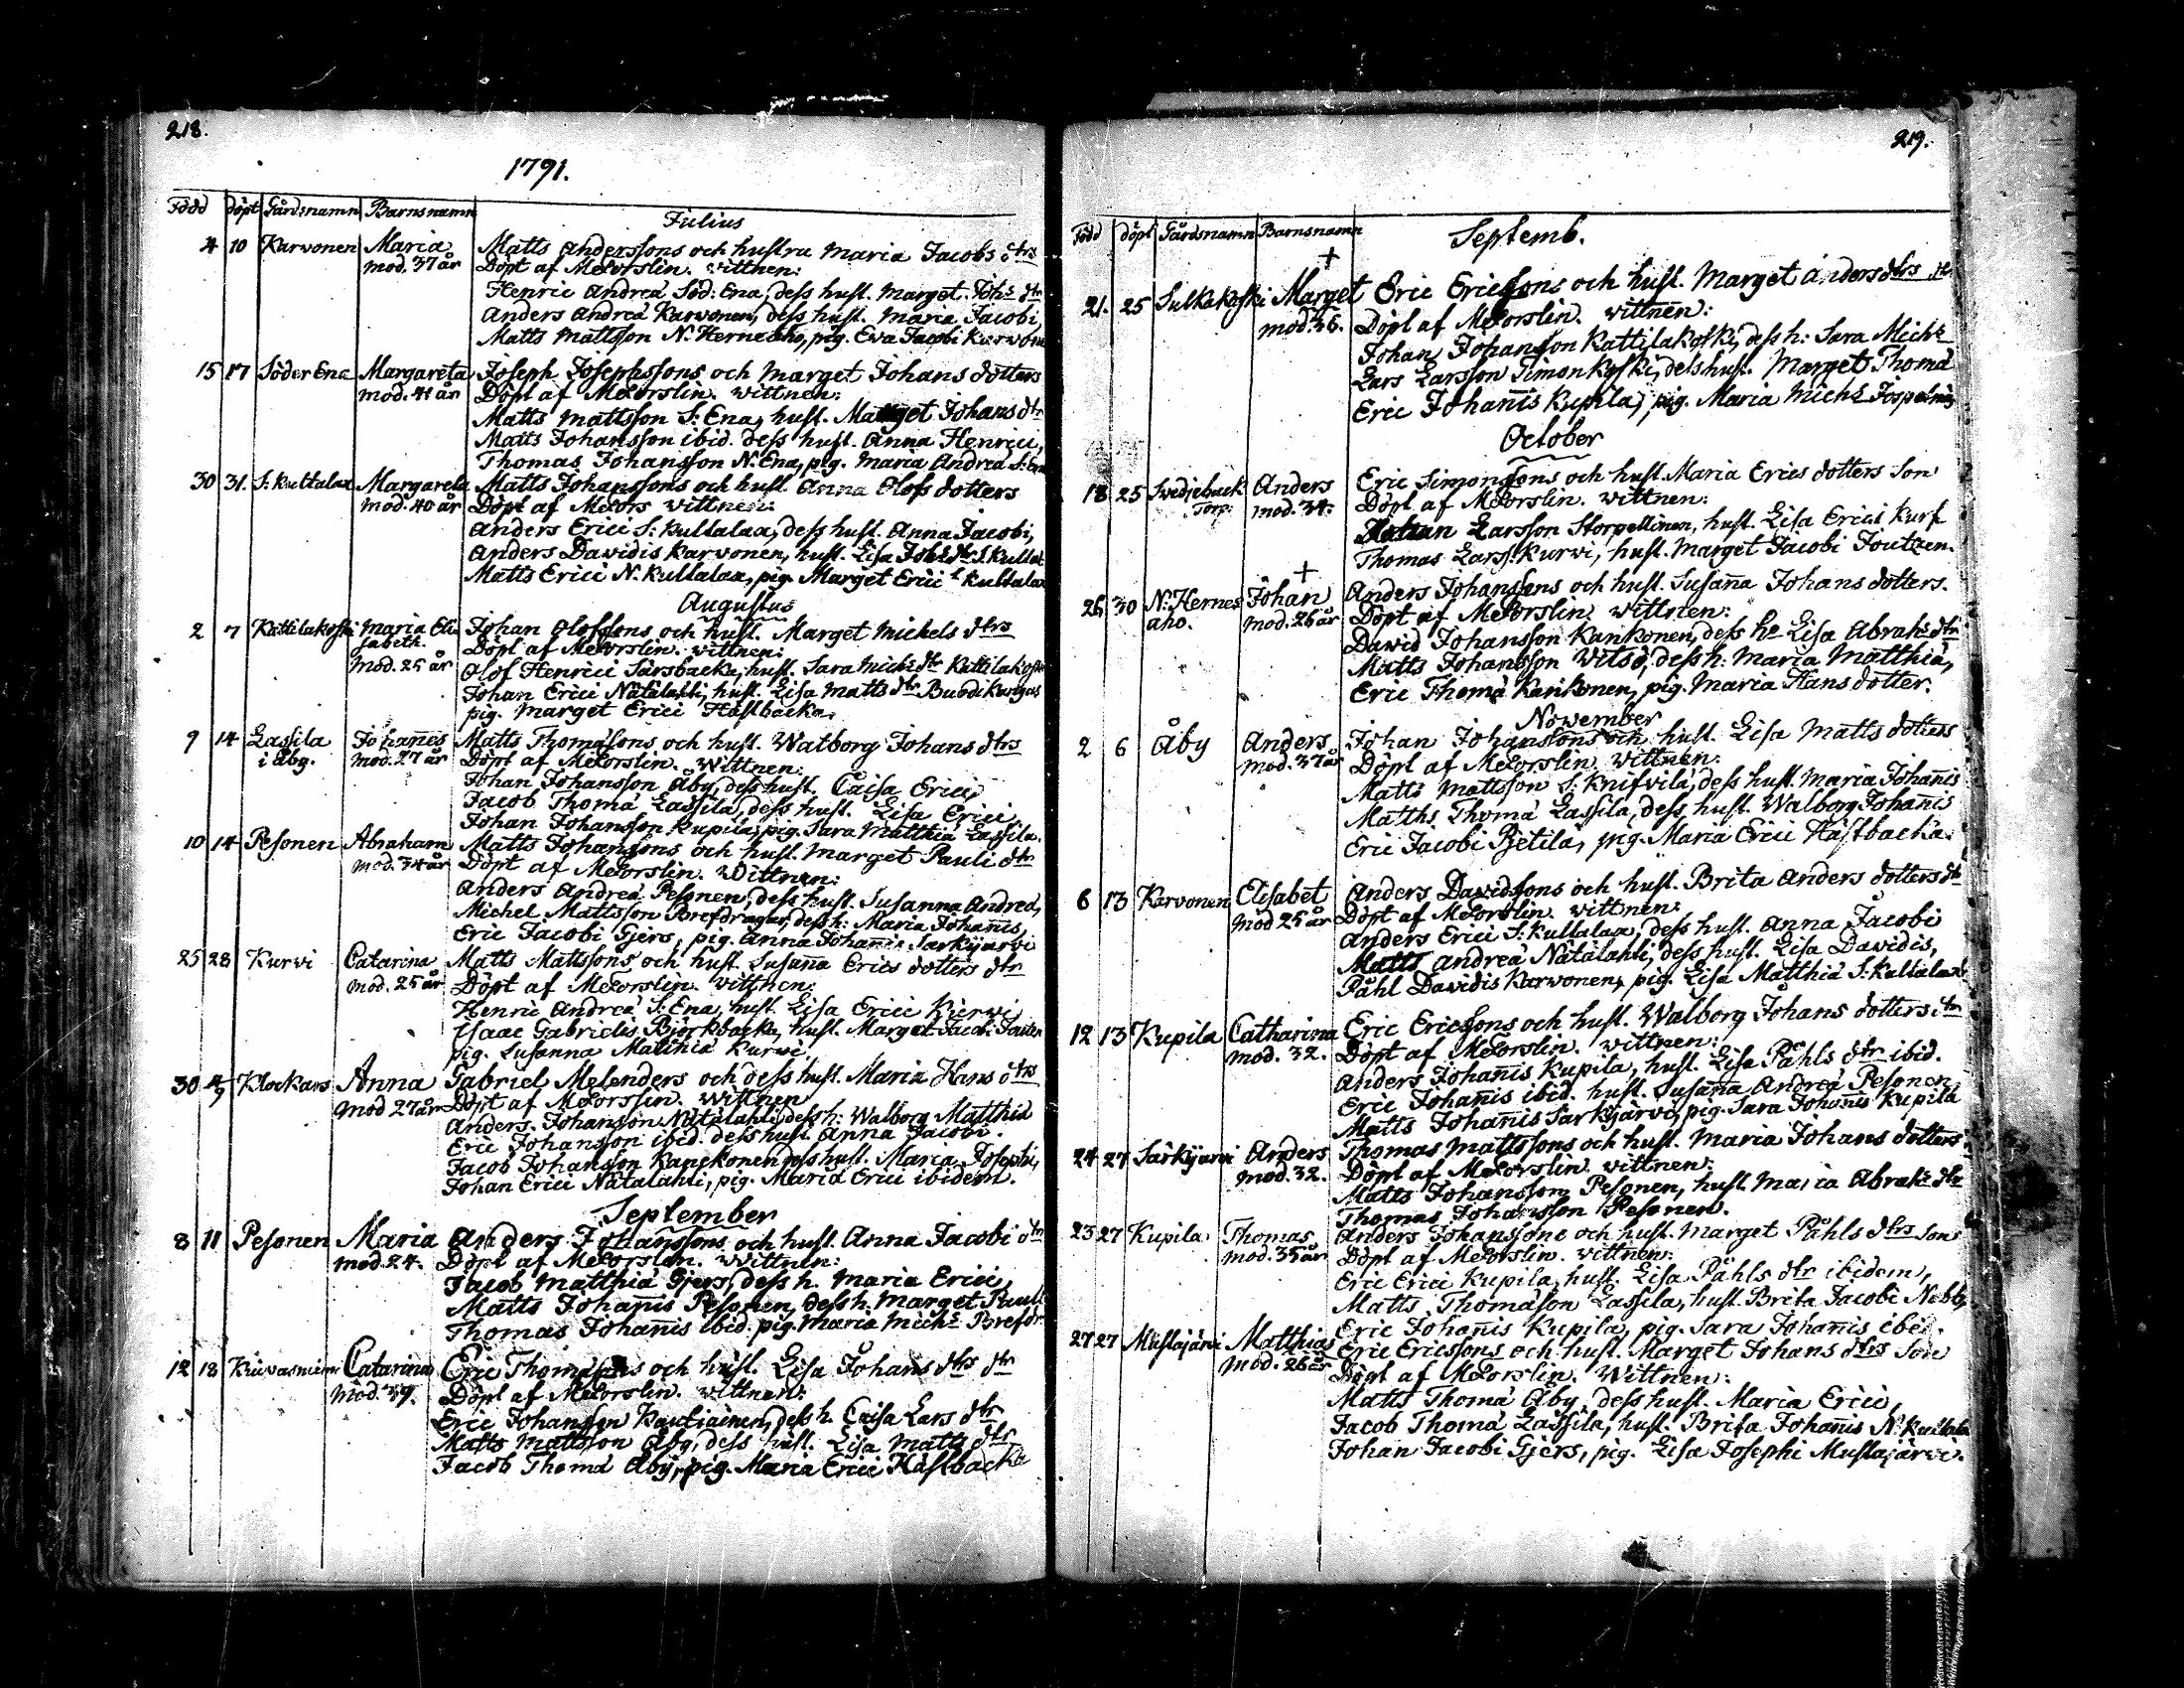 218.
1791.
Född döpt Gårdsnamn Barnsnamn
Julius
4 10 Karvonen Maria Matts Anderssons och hustru Maria Jacobs dtrs
mod. 37 år Döpt af McLorslin. vittnen:
Henric Andreæ Söd: Ena, dess hust. Marget. Johs dtr
Anders Andreæ Karvonen, dess hust. Maria Jacobi,
Matts Mattsson N. Herneaho, pig. Eva Jacobi Karvonen
15 17 Söder Ena Margareta Joseph Josephssons och Marget Johans dotters
mod. 41 år Döpt af McLorslin. vittnen:
Matts Mattsson S: Ena, hust. Marget Johans dtr
Matts Johansson ibid. dess hust. Anna Henrici,
Thomas Johansson N. Ena, pig. Maria Andreæ S: Ena
30 31. S: Kultalax Margareta Matts Johanssons och hust. Anna Olofs dotters
mod. 40 år Döpt af McLors vittnen:
Anders Erici S: Kullalaa, dess hust. Anna Jacobi,
Anders Davidis Karvonen, hust. Lisa Johs dtr S. Kullal
Matts Erici N. Kullalaa, pig. Marget Erici Kullalaa
Augustus
2 7 Kattilakoski Maria Eli- Johan Olofssons och hust. Marget Michels dtrs
sabeth. Döpt af McLorslin. vittnen:
mod. 25 år Olof Henrici Särsbacka, hust. Sara Michs dtr Kattilakoski
Johan Erici Nätälahti, hust. Lisa Matts dtr Bundikangas
pig. Marget Erici Hästbacka.
9 14 Lassila Johannes Matts Thomæsons och hust. Walborg Johans dtrs
i Åby. mod. 27 år Döpt af McLorslin. Wittnen:
Johan Johansson Åby, dess hust. Caisa Erici,
Jacob Thomæ Lassila, dess hust. Lisa Erici,
Johan Johansson Kupila, pig. Sara Matthiæ Lassila.
10 14 Pesonen Abraham Matts Johanssons och hust. Marget Pauli dtr
mod. 34 år Döpt af McLorslin. Wittnen:
Anders Andreæ Pesonen, dess hust. Susanna Andreæ,
Michel Mattsson Brefdragar, dess h: Maria Johannis,
Eric Jacobi Gjers, pig. Anna Johannis Särkijärvi
25 28 Kurvi Catarina Matts Mattssons och hust Susanna Erics dotters dtr
mod. 25 år Döpt af McLorslin. Vittnen:
Henric Andreæ S. Ena, hust. Lisa Erici Kierwi
Isaac Gabrielis Björkbacka, hust. Marget Jacob.
pig. Susanna Matthiæ Kurvi.
30 4/9 Klockars Anna Gabriel Melenders och dess hust. Maria Hans dtrs
mod 27 år Döpt af McLorslin. Wittnen
Anders Johansson Nätälahti, dess h: Walborg Matthiæ
Eric Johansson ibid. dess hust. Anna Jacobi.
Jacob Johansson Kanckonen dess hust. Maria Josephi,
Johan Erici Nätälahti, pig. Maria Erici ibidem.
September
8 11 Pesonen Maria Anders Johanssons och hust. Anna Jacobi dtr
mod. 24. Döpt af McLorslin. Wittnen:
Jacob Matthiæ Gjers, dess h. Maria Erici,
Matts Johannis Pesonen, dess h. Marget Pauli
Thomas Johannis ibid. pig. Maria Michs Brefdr
12 18 Kuivasniemi Catarina Eric Thomæsons och hust. Lisa Johans dtrs dtr
mod. 39. Döpt af McLorslin. vittnen:
Eric Johansson Kautiainen, dess h. Caisa Lars dtr
Matts Mattsson Åby, dess hust. Lisa Matts dtr
Jacob Thomæ Åby, pig. Maria Erici Hästbacka
219.
Född döpt Gårdsnamn Barnsnamn
Septemb.
+
21. 25 Sulkakoski Marget Eric Ericssons och hust. Marget Anders dtrs dtr
mod. 36. Döpt af McLorslin. vittnen:
Johan Johansson Kattilakoski, dess h: Sara Michs
Lars Larsson Timonkoski, dess hust. Marget Thomæ
Eric Johannis Kupila, pig. Maria Michs
October
18 25 Svedjeback Anders Eric Simonssons och hust. Maria Erics dotters Son
Torp. mod. 34. Döpt af McLorslin. Wittnen:
Johan Larsson Storpellinen, hust. Lisa Erici Kurf
Thomas Larss. Kurvi, hust. Marget Jacobi Joutzen.
+
26 30 N: Hernes Johan Anders Johanssons och hust. Susanna Johans dotters.
aho. mod. 26 år Döpt af McLorslin. Wittnen:
David Johansson Kankonen, dess h. Lisa Abrahs dtr
Matts Johansson Vitsö, dess h: Maria Matthiæ,
Eric Thomæ Kankonen, pig. Maria Hans dotter.
November
2 6 Åby Anders Johan Johanssons och hust. Lisa Matts dotters
mod. 37 år Döpt af McLorslin. vittnen:
Matts Mattsson S: Knifvilä, dess hust. Maria Johannis
Matths Thomæ Lassila, dess hust. Walborg Johannis
Eric Jacobi Pjetilä, pig. Maria Erici Hästbacka.
6 13 Karvonen Elisabet Anders Davidssons och hust. Brita Anders dotters dtr
mod 25 år Döpt af McLorslin. vittnen:
Anders Erici S: Kullalaa, dess hust. Anna Jacobi
Matts Andreæ Nätälahti, dess hust. Lisa Davidis,
Påhl Davidis Karvonen, pig. Lisa Matthiæ S: Kullalaa
12 13 Kupila Catharina Eric Ericssons och hust. Walborg Johans dotters dtr
mod. 32. Döpt af McLorslin. vittnen:
Anders Johannis Kupila, hust. Lisa Påhls dtr ibid.
Eric Johannis ibid. hust. Susanna Andreæ Pesonen,
Matts Johannis Särkijärvi, pig. Sara Johannis Kupila
24 27 Särkijärvi Anders Thomas Mattssons och hust. Maria Johans dotters
mod. 32. Döpt af McLorslin. vittnen:
Matts Johansson Pesonen, hust. Maria Abrahs dtr
Thomas Johansson Pesonen.
23 27 Kupila Thomas Anders Johanssons och hust. Marget Påhls dtrs Son
mod. 35 år Döpt af McLorslin. vittnen:
Eric Erici Kupila, hust. Lisa Påhls dtr ibidem,
Matts Thomæson Lassila, hust. Brita Jacobi Nebb,
Eric Johannis Kupila, pig. Sara Johannis ibid.
27 27 Mustajärvi Matthias Eric Ericssons och hust. Marget Johans dtrs Son
mod. 26 år Döpt af McLorslin. Wittnen:
Matts Thomæ Åby, dess hust. Maria Erici,
Jacob Thomæ Lassila, hust. Brita Johannis N. Kullala
Johan Jacobi Gjers, pig. Lisa Josephi Mustajärvi.